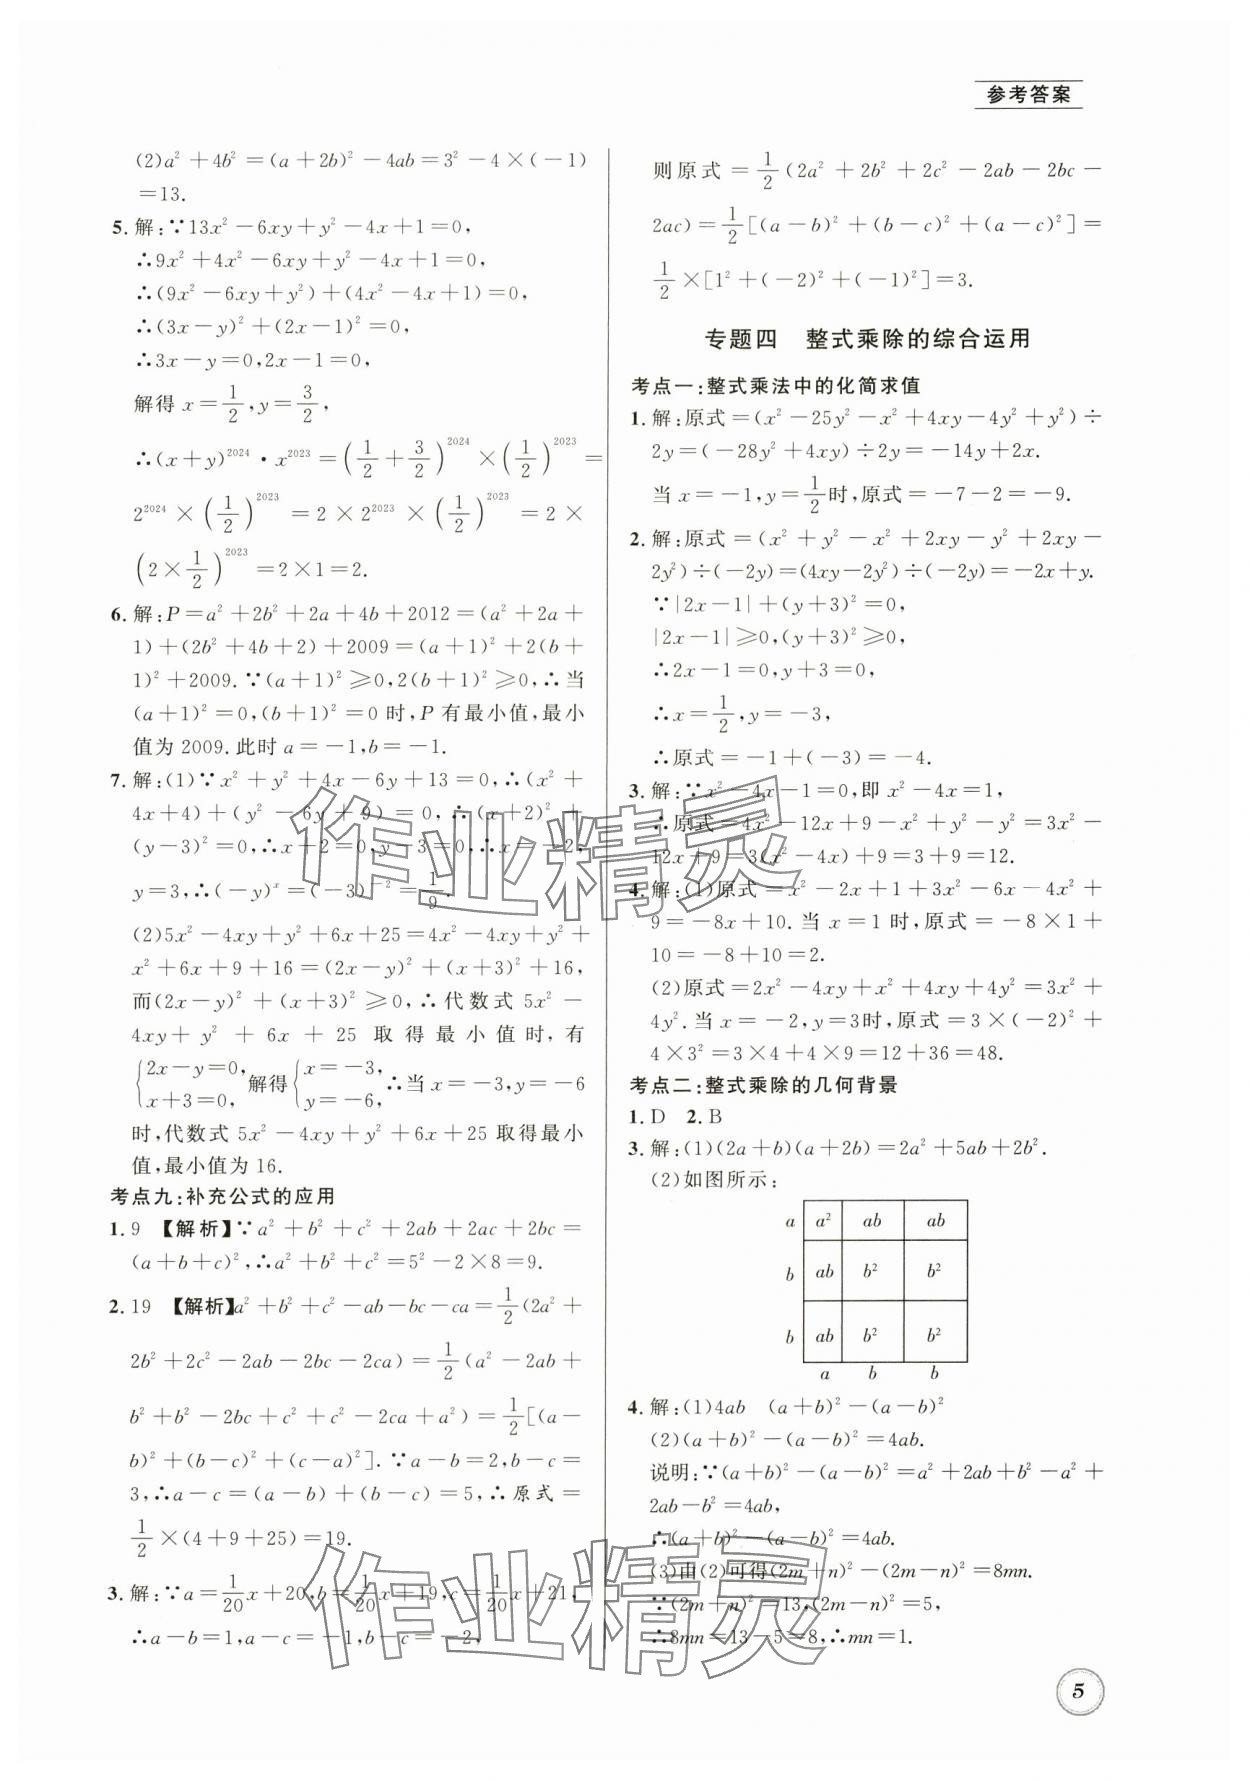 参考答案
(2)a²+4b²=(a+2b)²-4ab=3²-4×(-1)
=13.
5. 解:∵13x²-6xy+y²-4x+1=0,
∴9x²+4x²-6xy+y²-4x+1=0,
∴(9x²-6xy+y²)+(4x²-4x+1)=0,
∴(3x-y)²+(2x-1)²=0,
∴3x-y=0,2x-1=0,
解得 x=1/2,y=3/2,
∴(x+y)²⁰²⁴·x²⁰²³=(1/2+3/2)²⁰²⁴×(1/2)²⁰²³=
2²⁰²⁴×(1/2)²⁰²³=2×2²⁰²³×(1/2)²⁰²³=2×
(2×1/2)²⁰²³=2×1=2.
6. 解:P=a²+2b²+2a+4b+2012=(a²+2a+
1)+(2b²+4b+2)+2009=(a+1)²+2(b+
1)²+2009.∵(a+1)²≥0,2(b+1)²≥0,∴当
(a+1)²=0,(b+1)²=0 时,P 有最小值,最小
值为 2009.此时 a=-1,b=-1.
7. 解:(1)∵x²+y²+4x-6y+13=0,∴(x²+
4x+4)+(y²-6y+9)=0,∴(x+2)²+
(y-3)²=0,∴x+2=0,y-3=0,∴x=-2,
y=3,∴(-y)ˣ=(-3)⁻²=1/9.
(2)5x²-4xy+y²+6x+25=4x²-4xy+y²+
x²+6x+9+16=(2x-y)²+(x+3)²+16,
而(2x-y)²+(x+3)²≥0,∴代数式 5x²-
4xy+y²+6x+25 取得最小值时,有
{2x-y=0, x+3=0, 解得{x=-3, y=-6, ∴当 x=-3,y=-6
时,代数式 5x²-4xy+y²+6x+25 取得最小
值,最小值为 16.
考点九:补充公式的应用
1. 9 【解析】∵a²+b²+c²+2ab+2ac+2bc=
(a+b+c)²,∴a²+b²+c²=5²-2×8=9.
2. 19 【解析】a²+b²+c²-ab-bc-ca=1/2(2a²+
2b²+2c²-2ab-2bc-2ca)=1/2(a²-2ab+
b²+b²-2bc+c²+c²-2ca+a²)=1/2[(a-
b)²+(b-c)²+(c-a)²].∵a-b=2,b-c=
3,∴a-c=(a-b)+(b-c)=5,∴原式=
1/2×(4+9+25)=19.
3. 解:∵a=1/20x+20,b=1/20x+19,c=1/20x+21,
∴a-b=1,a-c=-1,b-c=-2,
则原式=1/2(2a²+2b²+2c²-2ab-2bc-
2ac)=1/2[(a-b)²+(b-c)²+(a-c)²]=
1/2×[1²+(-2)²+(-1)²]=3.
专题四 整式乘除的综合运用
考点一:整式乘法中的化简求值
1. 解:原式=(x²-25y²-x²+4xy-4y²+y²)÷
2y=(-28y²+4xy)÷2y=-14y+2x.
当 x=-1,y=1/2时,原式=-7-2=-9.
2. 解:原式=(x²+y²-x²+2xy-y²+2xy-
2y²)÷(-2y)=(4xy-2y²)÷(-2y)=-2x+y.
∵|2x-1|+(y+3)²=0,
|2x-1|≥0,(y+3)²≥0,
∴2x-1=0,y+3=0,
∴x=1/2,y=-3,
∴原式=-1+(-3)=-4.
3. 解:∵x²-4x-1=0,即 x²-4x=1,
∴原式=4x²-12x+9-x²+y²-y²=3x²-
12x+9=3(x²-4x)+9=3+9=12.
4. 解:(1)原式=x²-2x+1+3x²-6x-4x²+
9=-8x+10.当 x=1 时,原式=-8×1+
10=-8+10=2.
(2)原式=2x²-4xy+x²+4xy+4y²=3x²+
4y².当 x=-2,y=3时,原式=3×(-2)²+
4×3²=3×4+4×9=12+36=48.
考点二:整式乘除的几何背景
1. D 2. B
3. 解:(1)(2a+b)(a+2b)=2a²+5ab+2b².
(2)如图所示:
a a² ab ab
b ab b² b²
b ab b² b²
a b b
4. 解:(1)4ab (a+b)²-(a-b)²
(2)(a+b)²-(a-b)²=4ab.
说明:∵(a+b)²-(a-b)²=a²+2ab+b²-a²+
2ab-b²=4ab,
∴(a+b)²-(a-b)²=4ab.
(3)由(2)可得(2m+n)²-(2m-n)²=8mn.
∵(2m+n)²=13,(2m-n)²=5,
∴8mn=13-5=8,∴mn=1.
5
作业精灵
作业精灵